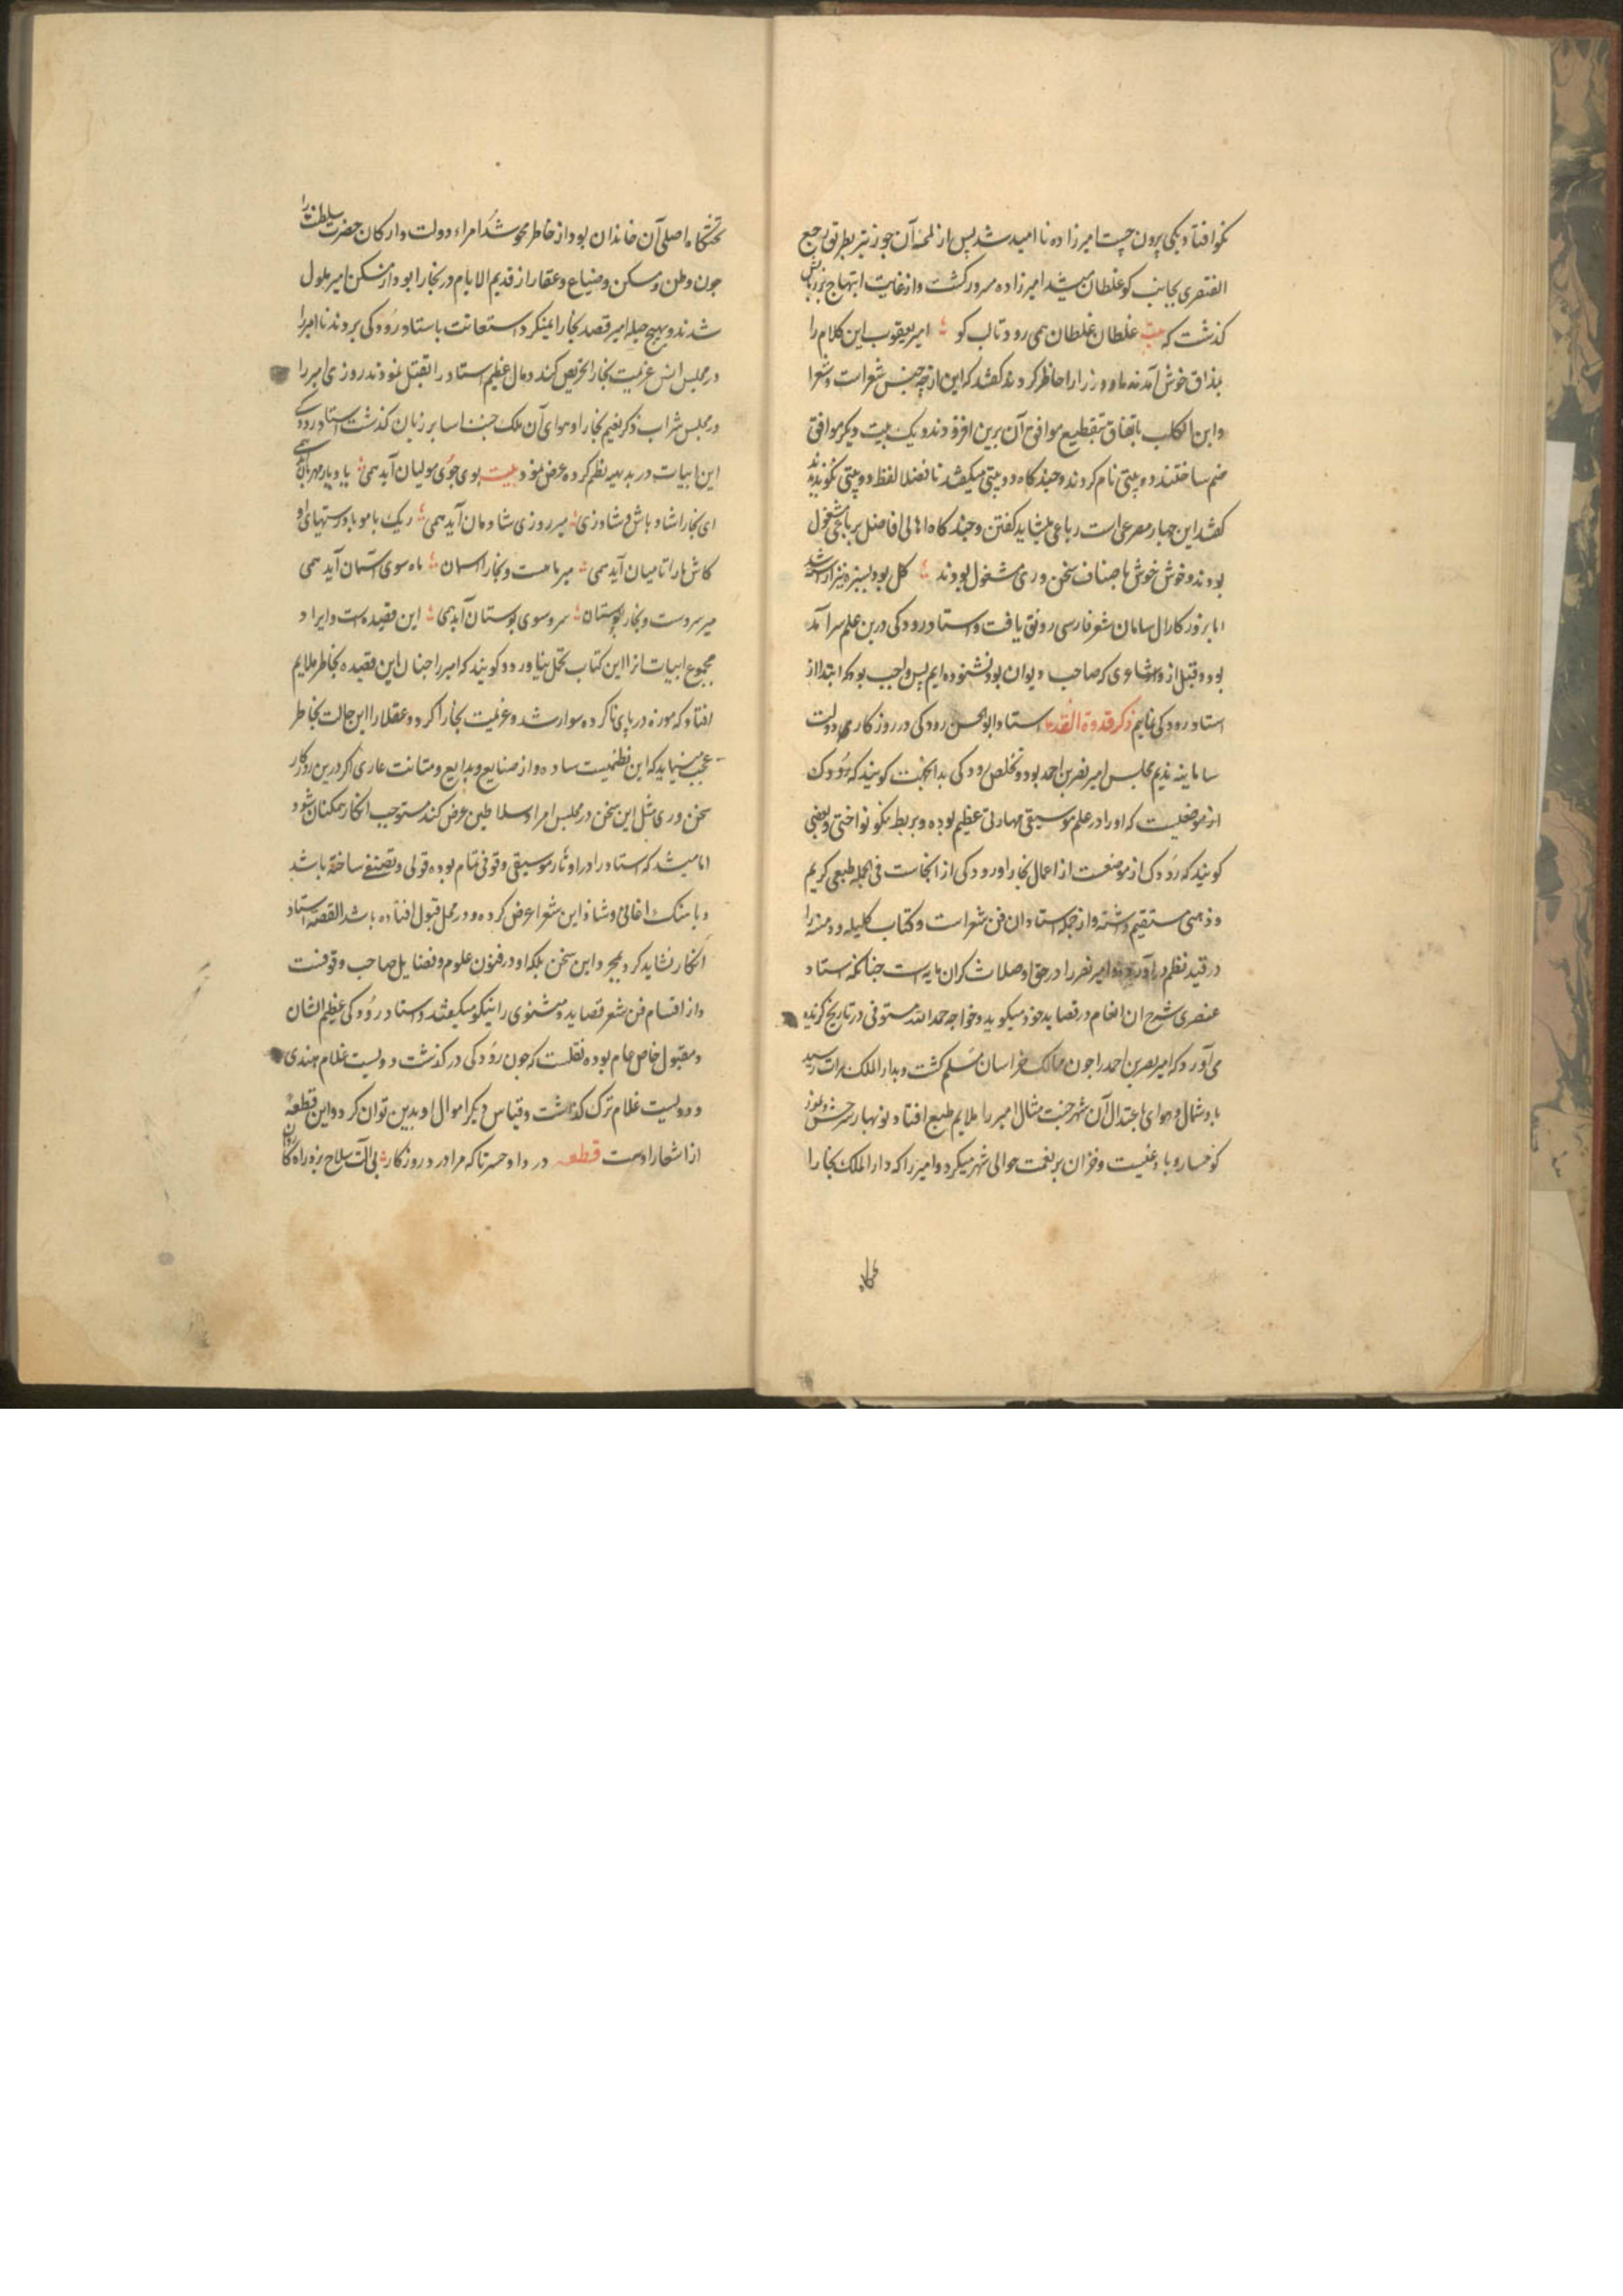 بکو افتاد و یکی بیرون جست امیرزاده نا امید شد پس از لمحه آن جوز نیز بطریق رجع
القهقری بجانب کو غلطان میشد امیرزاده مسرور کشت و از غایت ابتهاج بر زبانش
کذشت که بیت غلطان غلطان همی رود تا لب کو امیر یعقوب این کلام را
بمذاق خوش آمد ندما و وزرا را حاظر کردند کفتند که این از چه جنس شعر است و شعرا
و ابن الکلب باتفاق تقطیع موافق آن برین افزودند و یک بیت دیکر موافق
ضم ساختند و دو بیتی نام کردند و چند کاه دو بیتی میکفتند تا فضلا لفظ دو بیتی نکو ندیدند
کفتند این چهار مصرعی است رباعی میشاید کفتن و چند کاه اهالی افاضل برباعی مشغول
بودند و خوش خوش باصناف سخن وری مشغول بودند کل بود بسبزه نیز آراسته شد
اما بروزکار آل سامان شعر فارسی رونق یافت و استاد رودکی درین علم سرآمد
بود و قبل ازو شاعری که صاحب دیوان بود نشنوده ایم پس واجب بود که ابتدا از
استاد رودکی نمایم ذکر قدوة القدما استاد ابو الحسن رودکی در روزکار دولت
سامانیه ندیم مجلس امیر نصر بن احمد بود و تخلص رودکی بدانجهت کویند که رودک
از موضعیست که او را در علم موسیقی مهارتی عظیم بوده و بربط نکو نواختی و بعضی
کویند که رودک از موضعست از اعمال بخارا و رودکی از انجاست فی الجمله طبعی کریم
و ذهنی مستقیم داشته و از جمله استادان فن شعر است و کتاب کلیله و دمنه را
در قید نظم درآورده و امیر نصر را در حق او صلات کران مایه است چنانکه استاد
عنصری شرح ان انعام در قصاید خود میکوید و خواجه حمد الله مستوفی در تاریخ کزیده
می آورد که امیر نصر بن احمد را چون ممالک خراسان مسلم کشت و بدار الملک هرات رسید
باد شمال و هوای باعتدال آن شهر جنت مثال امیر را ملایم طبع افتاد و نوبهار
کوهسار و بادغیست و خزان پر نعمت حوالی شهر میکرد و امیر را که دار الملک بخارا
تختکاه
تختکاه اصلی آن خاندان بود از خاطر محو شد امراء دولت و ارکان حضرت سلطنت را
چون وطن و مسکن و ضیاع و عقار از قدیم الایام در بخارا بود از مسکن امیر ملول
شدند و بهیچ حیله امیر قصد بخارا نمیکرد استعانت باستاد رودکی بردند تا امیر را
در مجلس انس عزیمت بخارا تحریص کند و مال عظیم استاد را تقبل نمودند روزی امیر را
در مجلس شراب ذکر نعیم بخارا و هوای آن ملک جنت اسا بر زبان کذشت استاد رودکی
این ابیات در بدیهه نظم کرده عرض نمود بیت بوی جوی مولیان آید همی یاد یار مهربان آید همی
ای بخارا شاد باش و شاد زی میر روزی شادمان آید همی ریک بامو با درستیهای او
کاش ما را تا میان آید همی میر ماهست و بخارا اسمان ماه سوی اسمان آید همی
میر سروست و بخارا بوستان سرو سوی بوستان آید همی این قصیده است و ایراد
مجموع ابیات انرا این کتاب تحمل نیاورد و کویند که امیر را چنان این قصیده بخاطر ملایم
افتاد که موزه در پای نا کرده سوار شد و عزیمت بخارا کرد و عقلا را این حالت بخاطر
عجب مینماید که این نظمیست ساده و از صنایع و بدایع و متانت عاری اکر درین روزکار
سخن وری مثل این سخن در مجلس امرا و سلاطین عرض کند مستوجب انکار همکنان شود
اما میشد که استاد را در اوتار موسیقی وقوفی تمام بوده قولی و تصنیفی ساخته باشد
و باهنک اغانی و ساز این شعرا عرض کرده و در محل قبول افتاده باشد القصه استاد
انکار نشاید کرد بمجرد این سخن بلکه او در فنون علوم و فضایل صاحب وقوفست
و از اقسام فن شعر قصاید و مثنوی را نیکو میکفته و استاد رودکی عظیم الشان
و مقبول خاص و عام بوده نقلست که چون رودکی در کذشت دویست غلام هندی
و دویست غلام ترک کذاشت و قیاس دیکر اموال او بدین توان کرد و این قطعه
از اشعار اوست قطعه دردا و حسرتا که مرا در روزکار بی آلت سلاح بزد راه کاروان